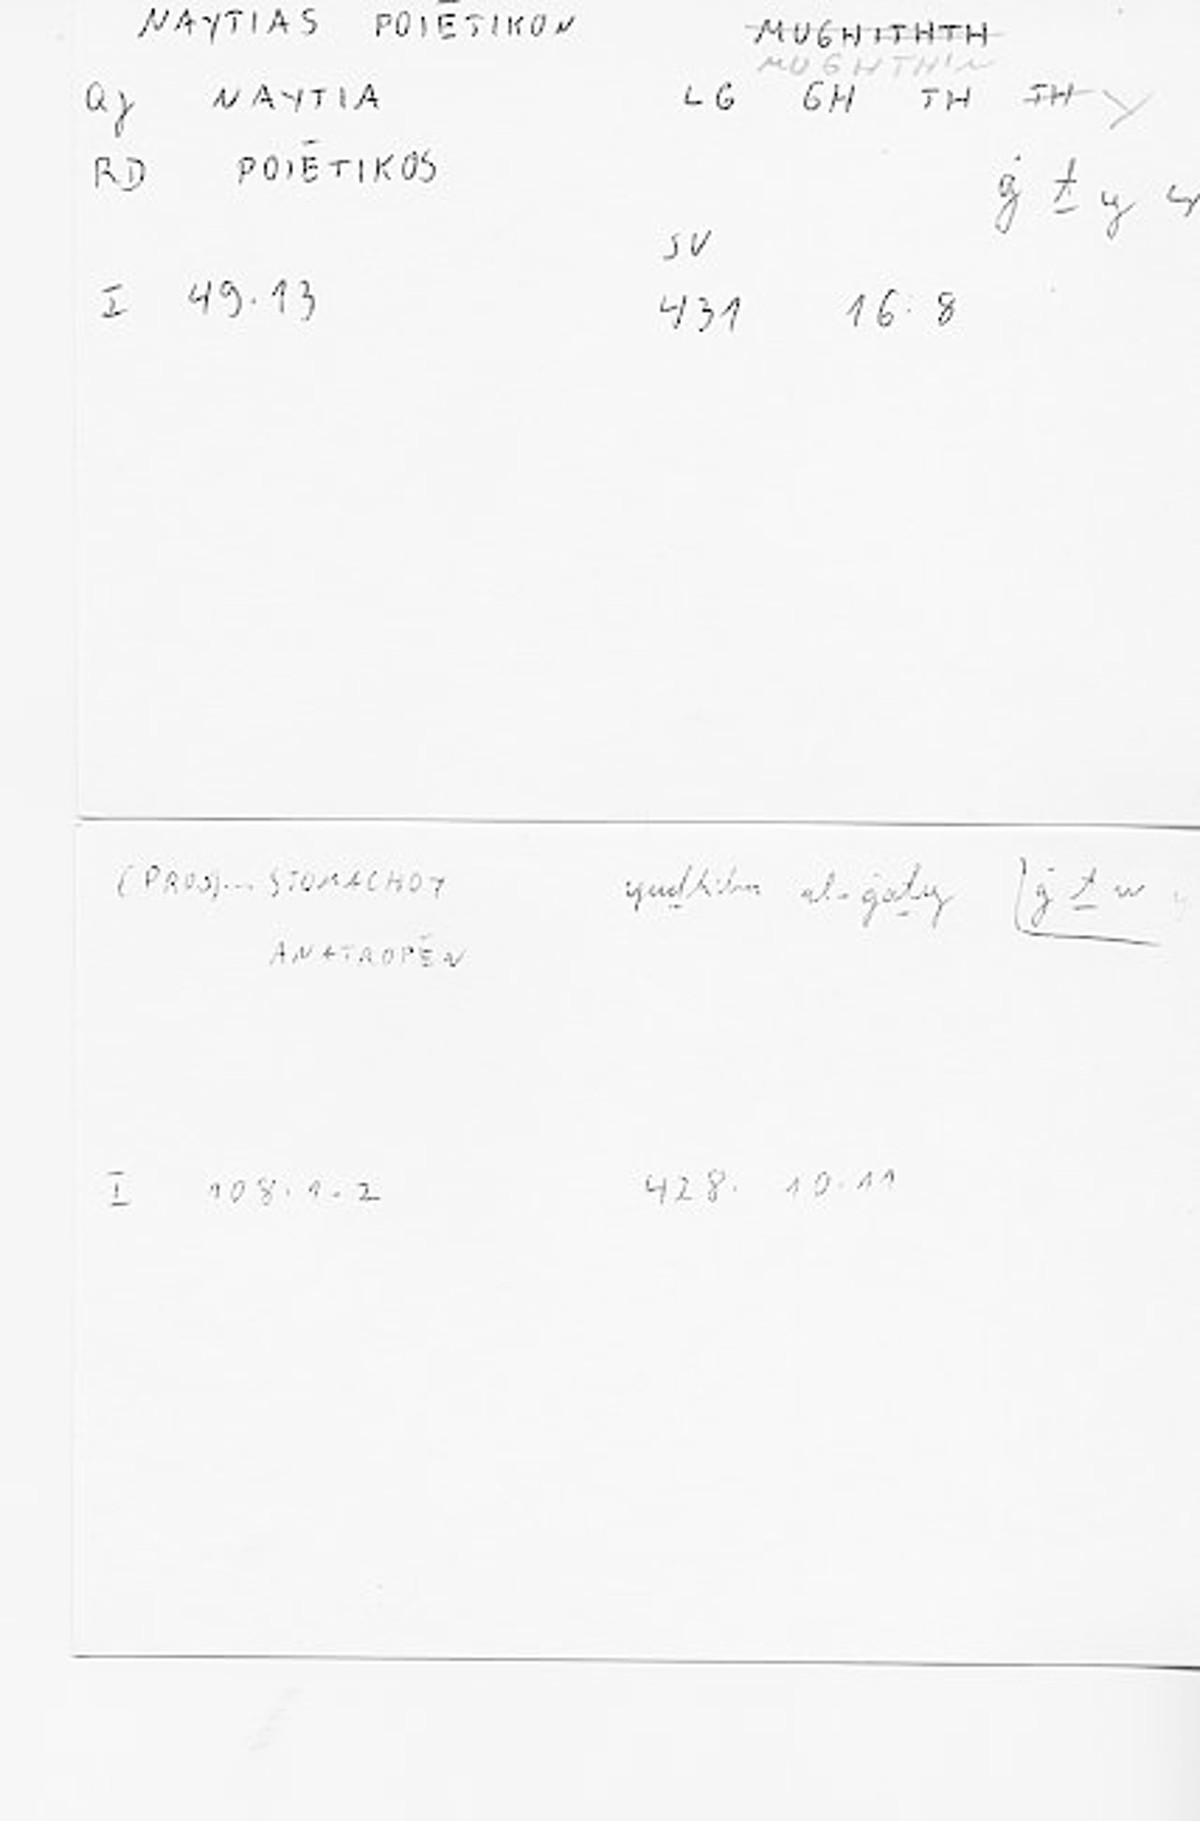 NAYTIAS POIĒTIKON MUGHITHTH
MUGHTHIN
Qy NAYTIA LG GH TH TH Y
RD POIĒTIKOS
ġ ṯ y
SV
I 49.13 431 16.8
(PROS)... STOMACHOY al-ġaṯy ġ ṯ w
ANATROPĒN
I 108.1.2 428. 10.11